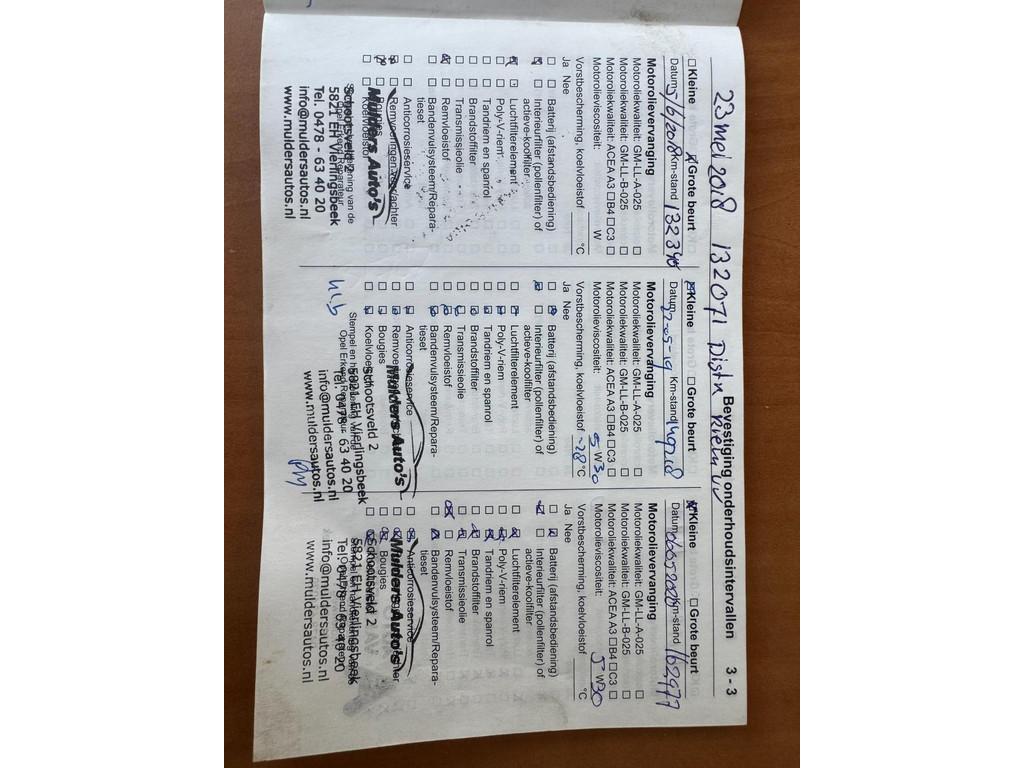 Bevestiging onderhoudsintervallen 3 - 3
23 mei 2018 132071 Distr Riem
Kleine Grote beurt
Datum 5/6/2018 Km-stand 132346
Motorolievervanging
Motoroliekwaliteit: GM-LL-A-025
Motoroliekwaliteit: GM-LL-B-025
Motoroliekwaliteit: ACEA A3 B4 C3
Motorolieviscositeit: W
Vorstbescherming, koelvloeistof °C
Ja Nee
Batterij (afstandsbediening)
Interieurfilter (pollenfilter) of
actieve-koolfilter
Luchtfilterelement
Poly-V-riem
Tandriem en spanrol
Brandstoffilter
Transmissieolie
Remvloeistof
Bandenvulsysteem/Repara-
tieset
Anticorrosieservice
Remvoeringen voor/achter
Bougies
Koelvloeistof
Mulders Auto's
Schootsveld 2
5821 EH Vierlingsbeek
Tel. 0478 - 63 40 20
info@muldersautos.nl
www.muldersautos.nl
Kleine Grote beurt
Datum 22-05-19 Km-stand
Motorolievervanging
Motoroliekwaliteit: GM-LL-A-025
Motoroliekwaliteit: GM-LL-B-025
Motoroliekwaliteit: ACEA A3 B4 C3
Motorolieviscositeit: 5 W 30
Vorstbescherming, koelvloeistof -28 °C
Ja Nee
Batterij (afstandsbediening)
Interieurfilter (pollenfilter) of
actieve-koolfilter
Luchtfilterelement
Poly-V-riem
Tandriem en spanrol
Brandstoffilter
Transmissieolie
Remvloeistof
Bandenvulsysteem/Repara-
tieset
Anticorrosieservice
Bougies
Koelvloeistof
Mulders Auto's
Schootsveld 2
5821 EH Vierlingsbeek
Tel. 0478 - 63 40 20
info@muldersautos.nl
www.muldersautos.nl
Kleine Grote beurt
Datum Km-stand 162977
Motorolievervanging
Motoroliekwaliteit: GM-LL-A-025
Motoroliekwaliteit: GM-LL-B-025
Motoroliekwaliteit: ACEA A3 B4 C3
Motorolieviscositeit: 5 W 30
Vorstbescherming, koelvloeistof °C
Ja Nee
Batterij (afstandsbediening)
Interieurfilter (pollenfilter) of
actieve-koolfilter
Luchtfilterelement
Poly-V-riem
Tandriem en spanrol
Brandstoffilter
Transmissieolie
Remvloeistof
Bandenvulsysteem/Repara-
tieset
Anticorrosieservice
Bougies
Mulders Auto's
Schootsveld 2
5821 EH Vierlingsbeek
Tel. 0478 - 63 40 20
info@muldersautos.nl
www.muldersautos.nl